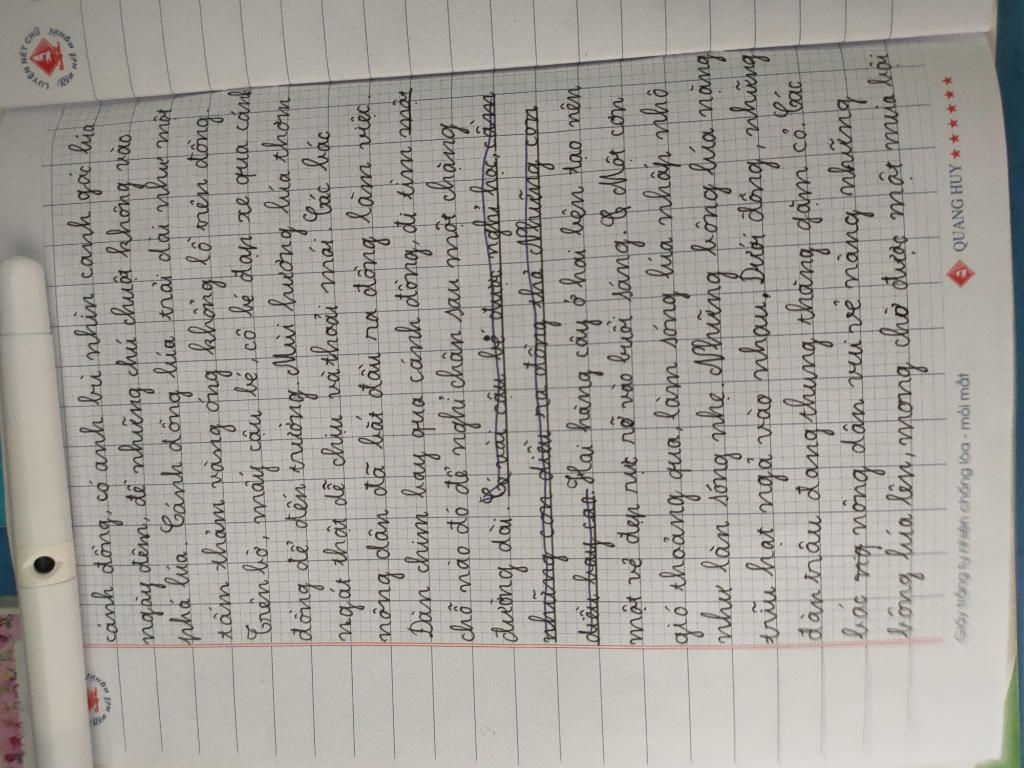 cánh đồng, có anh bù nhìn canh gác lúa
ngày đêm, để những chú chuột không vào
phá lúa. Cánh đồng lúa trải dài như một
tấm thảm vàng óng khổng lồ trên đồng.
Trên bờ, mấy cậu bé, cô bé đạp xe qua cánh
đồng để đến trường. Mùi hương lúa thơm
ngát thật dễ chịu và thoải mái. Các bác
nông dân đã bắt đầu ra đồng làm việc.
Đàn chim bay qua cánh đồng, đi tìm một
chỗ nào đó để nghỉ chân sau một chặng
đường dài. Có vài cậu bé được nghỉ học, cầm
những con diều ra đồng thả. Những con
diều bay cao. Hai hàng cây ở hai bên tạo nên
một vẻ đẹp rực rỡ vào buổi sáng. C Một cơn
gió thoảng qua, làm sóng lúa nhấp nhô
như làn sóng nhẹ. Những bông lúa nặng
trĩu hạt ngả vào nhau, Dưới đồng, những
đàn trâu đang thung thăng gặm cỏ. Các
bác ng nông dân vui vẻ nâng những
bông lúa lên, mong chờ được một mùa bội
LUYỆN NÉT CHỮ
QUANG HUY ★★★★★★
Giấy trắng tự nhiên chống lóa - mỏi mắt